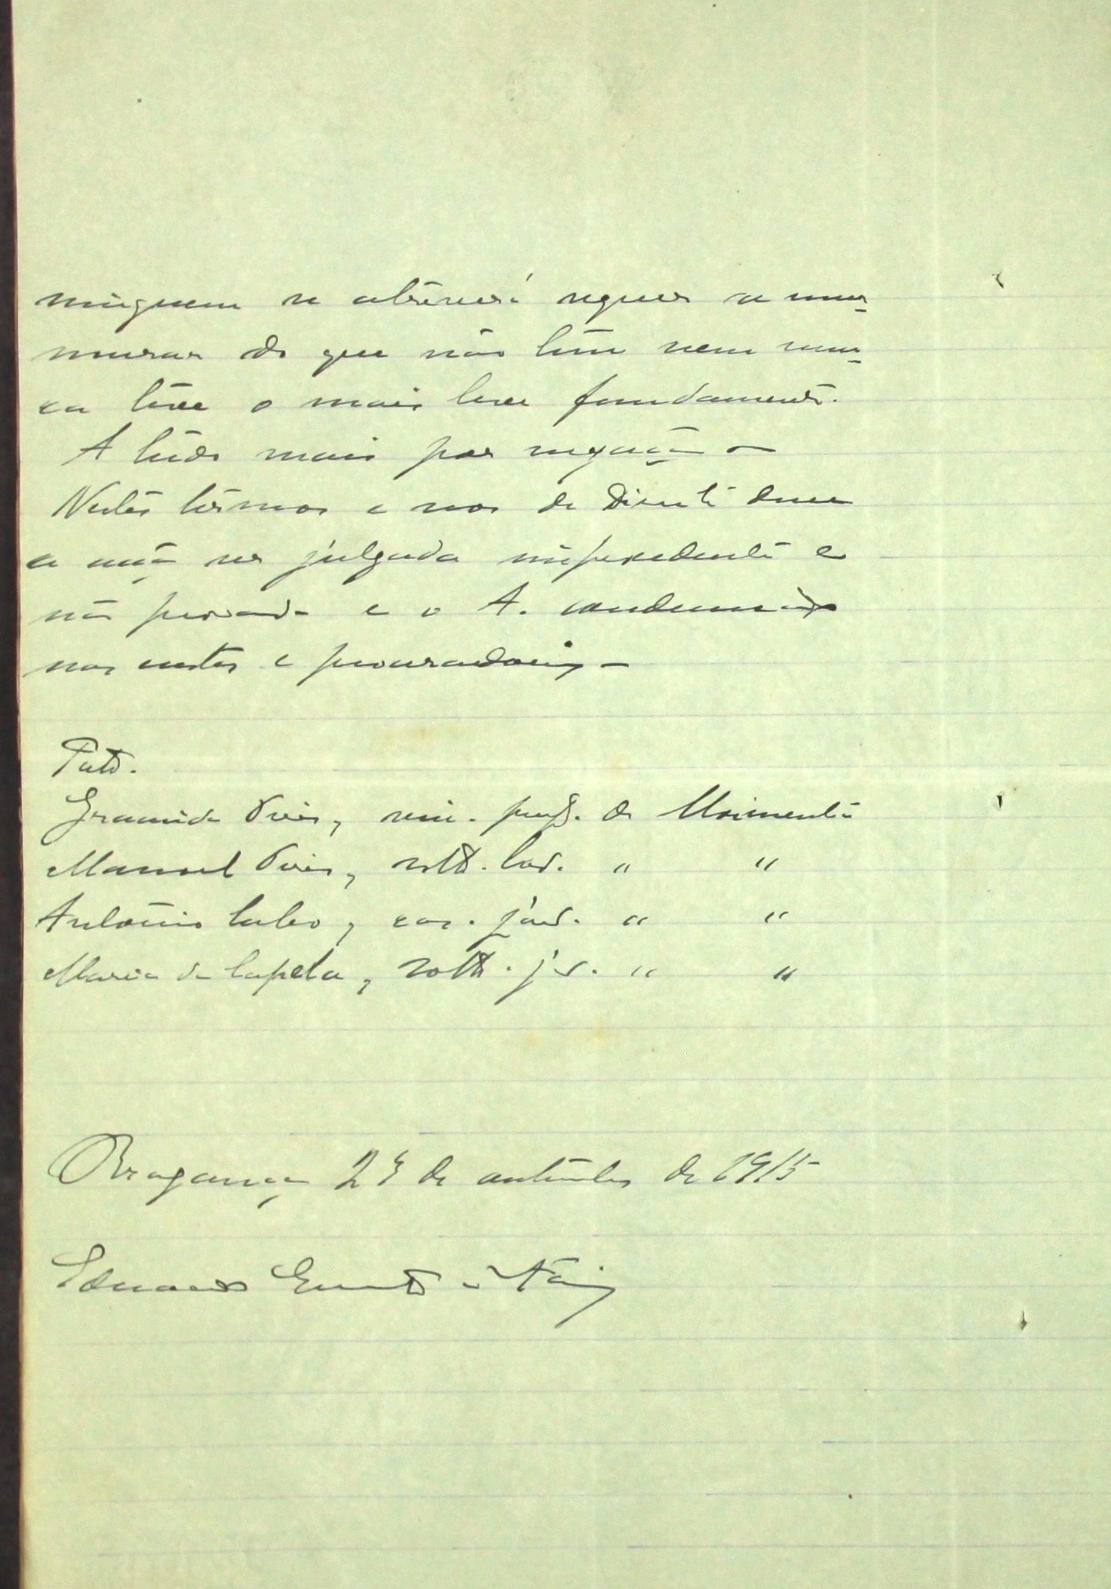 ninguem se atreverá sequer a mur-
murar do que não tem nem nun-
ca teve o mais leve fundamento.
A tudo mais por negação —
Nestes têrmos e nos de Direito deve
a acção ser julgada improcedente e
não provada e o A. condemnado
nas custas e procuradoria —
Test.
Pires, prop. de Moimenta
Manuel Pires, solt. lav. " "
António, cas. jor. " "
Maria da Capela, solt. " "
Bragança 23 de outubro de 1915
Eduardo Ernesto